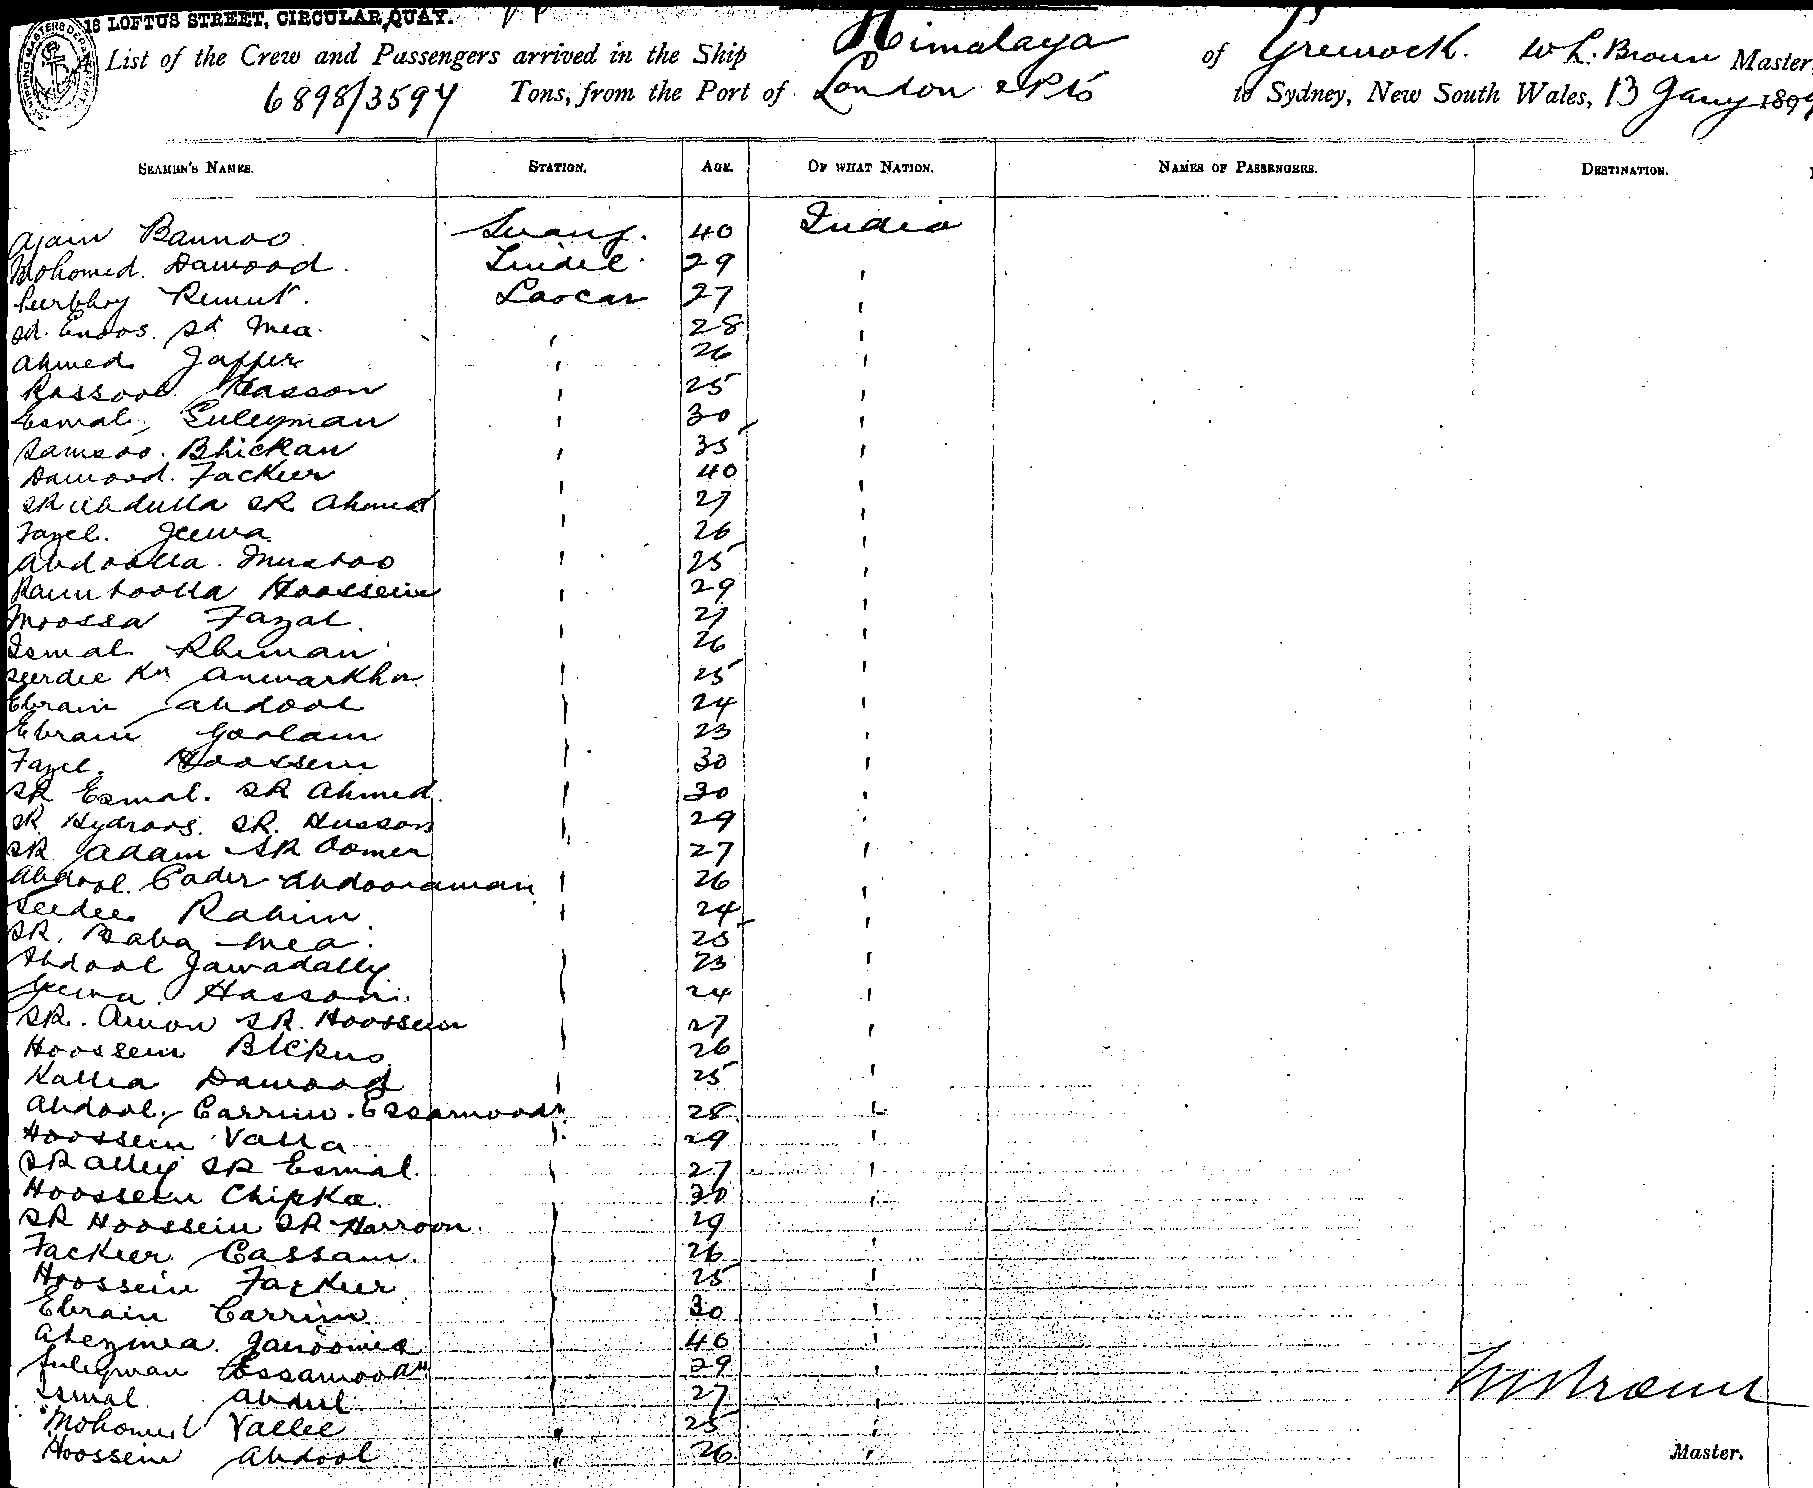 18 LOFTUS STREET, CIRCULAR QUAY.
List of the Crew and Passengers arrived in the Ship Himalaya of Greenock. W L. Brown Master.
6898/3594 Tons, from the Port of London & Pts to Sydney, New South Wales, 13 Jany 1899
SEAMEN'S NAMES. STATION. AGE. OF WHAT NATION. NAMES OF PASSENGERS. DESTINATION.
Bannoo 40 India
Mohomed. Dawood. Tindel 29 '
Lascar 27 '
Mea. ' 28 '
Ahmed Jaffer ' 26 '
Rassool Hasson ' 25 '
Esmal. Suleyman ' 30 '
Samsoo. Bhickan ' 35 '
Dawood. Fackeer ' 40 '
SK Abdulla SK Ahmed ' 27 '
Fazel. Jeewa ' 26 '
Abdoolla. ' 25 '
Hoossein ' 29 '
Moossa Fazal. ' 27 '
Esmal Rheman ' 26 '
Kn Anwarkhn. ' 25 '
Ebraim Abdool ' 24 '
Ebraim Goolam ' 23 '
Fazel. Hoossein ' 30 '
SK Esmal. SK Ahmed. ' 30 '
SK Hydroos. SK. Husson ' 29 '
SK Adam SK Oomer ' 27 '
Abdool. Cader Abdooraman ' 26 '
Seedee Rahim ' 24 '
SK. Baba Mea. ' 25 '
Abdool Jawadally ' 23 '
Jeewa Hasson. ' 24 '
SK. Amon SK. Hoossein ' 27 '
Hoossein ' 26 '
Kallia Dawood ' 25 '
Abdool. Carrim. Essamoodn ' 28 '
Hoossein Valla ' 29 '
SK Alley SK Esmal. ' 27 '
Hoossein Chipka. ' 30 '
SK Hoossein SK Harroon. ' 29 '
Fackeer Cassam. ' 26 '
Hoossein Fackeer ' 25 '
Ebraim Carrim ' 30 '
' 40 '
Suleyman ' 29 '
Esmal Abdul ' 27 '
Mohomed Vallee " 25 '
Hoossein Abdool " 26 "
W L Brown
Master.